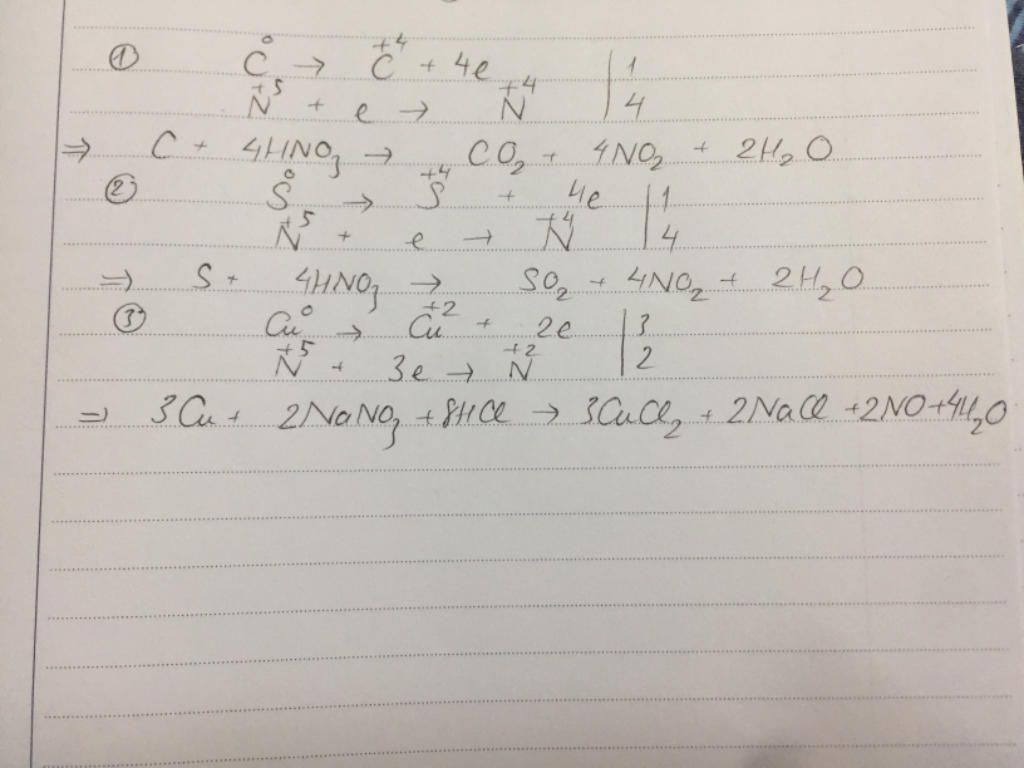 ① C⁰ → C⁺⁴ + 4e | 1
N⁺⁵ + e → N⁺⁴ | 4
⇒ C + 4HNO₃ → CO₂ + 4NO₂ + 2H₂O
② S⁰ → S⁺⁴ + 4e | 1
N⁺⁵ + e → N⁺⁴ | 4
⇒ S + 4HNO₃ → SO₂ + 4NO₂ + 2H₂O
③ Cu⁰ → Cu⁺² + 2e | 3
N⁺⁵ + 3e → N⁺² | 2
⇒ 3Cu + 2NaNO₃ + 8HCl → 3CuCl₂ + 2NaCl + 2NO + 4H₂O